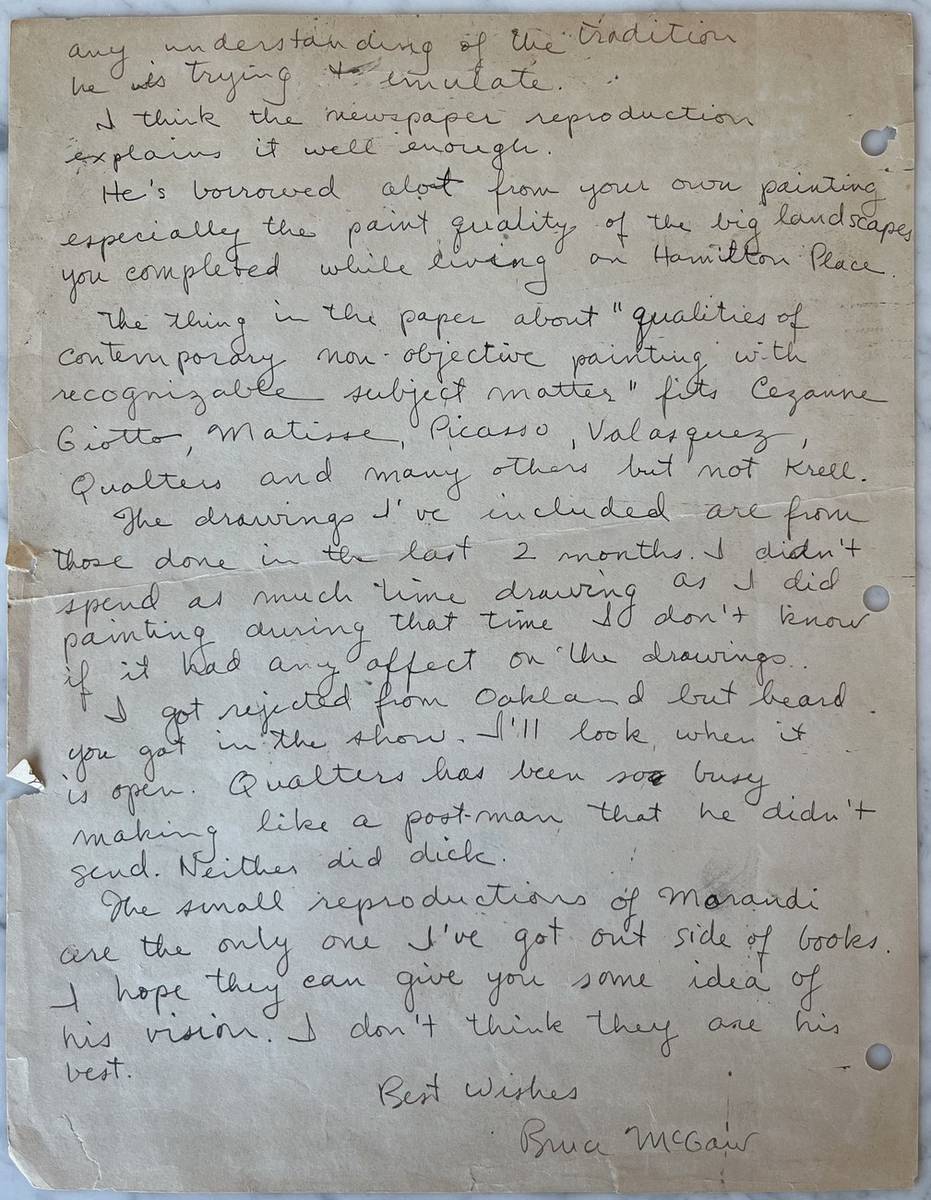 any understanding of the tradition
he is trying to emulate.
I think the newspaper reproduction
explains it well enough.
He's borrowed alot from your own painting
especially the paint quality of the big landscapes
you completed while living on Hamilton Place.
The thing in the paper about "qualities of
contemporary non-objective painting with
recognizable subject matter" fits Cezanne
Giotto, Matisse, Picasso, Valasquez,
Qualters and many others but not Krell.
The drawings I've included are from
those done in the last 2 months. I didn't
spend as much time drawing as I did
painting during that time I don't know
if it had any affect on the drawings..
I got rejected from Oakland but heard
you got in the show. I'll look when it
is open. Qualters has been soo busy
making like a post-man that he didn't
send. Neither did dick.
The small reproductions of Morandi
are the only one I've got out side of books.
I hope they can give you some idea of
his vision. I don't think they are his
best.
Best Wishes
Bruce McGaw